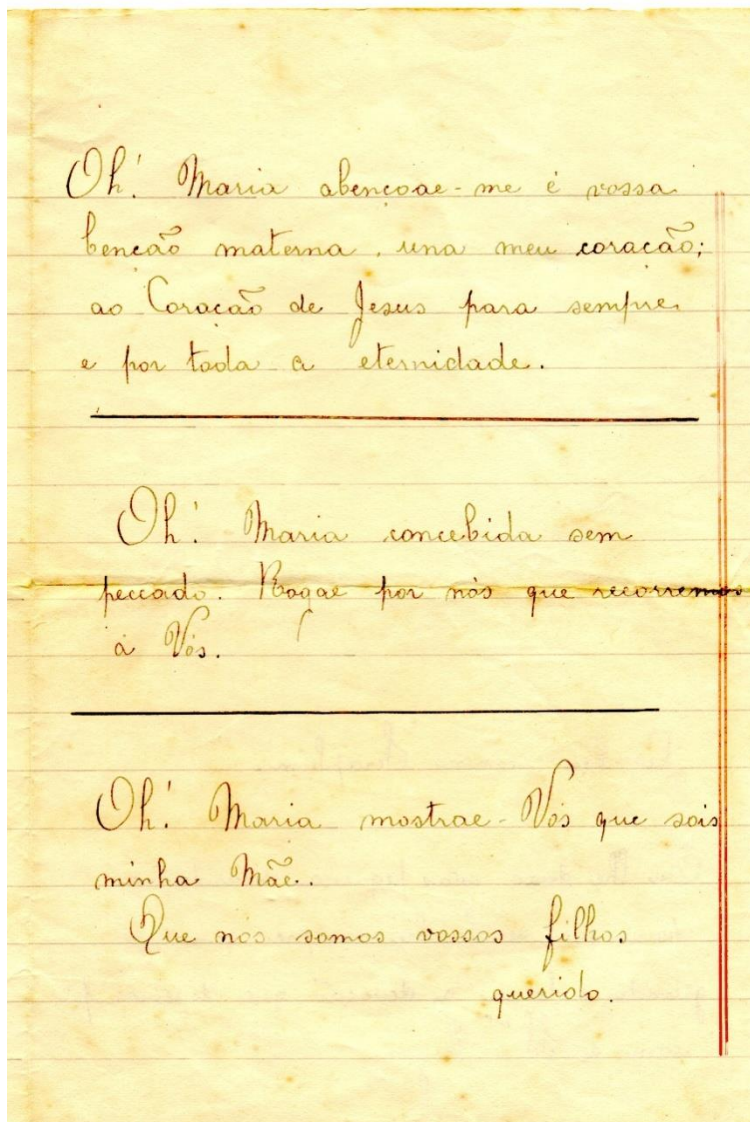 Oh! Maria abençoae-me é vossa
bencão materna. una meu coracão;
ao Coracão de Jesus para sempre.
e por toda a eternidade.
Oh! Maria concebida sem
peccado. Rogae por nós que recorremos
á Vós.
Oh! Maria mostrae-Vós que sois
minha Mãe.
Que nos somos vossos filhos
querido.